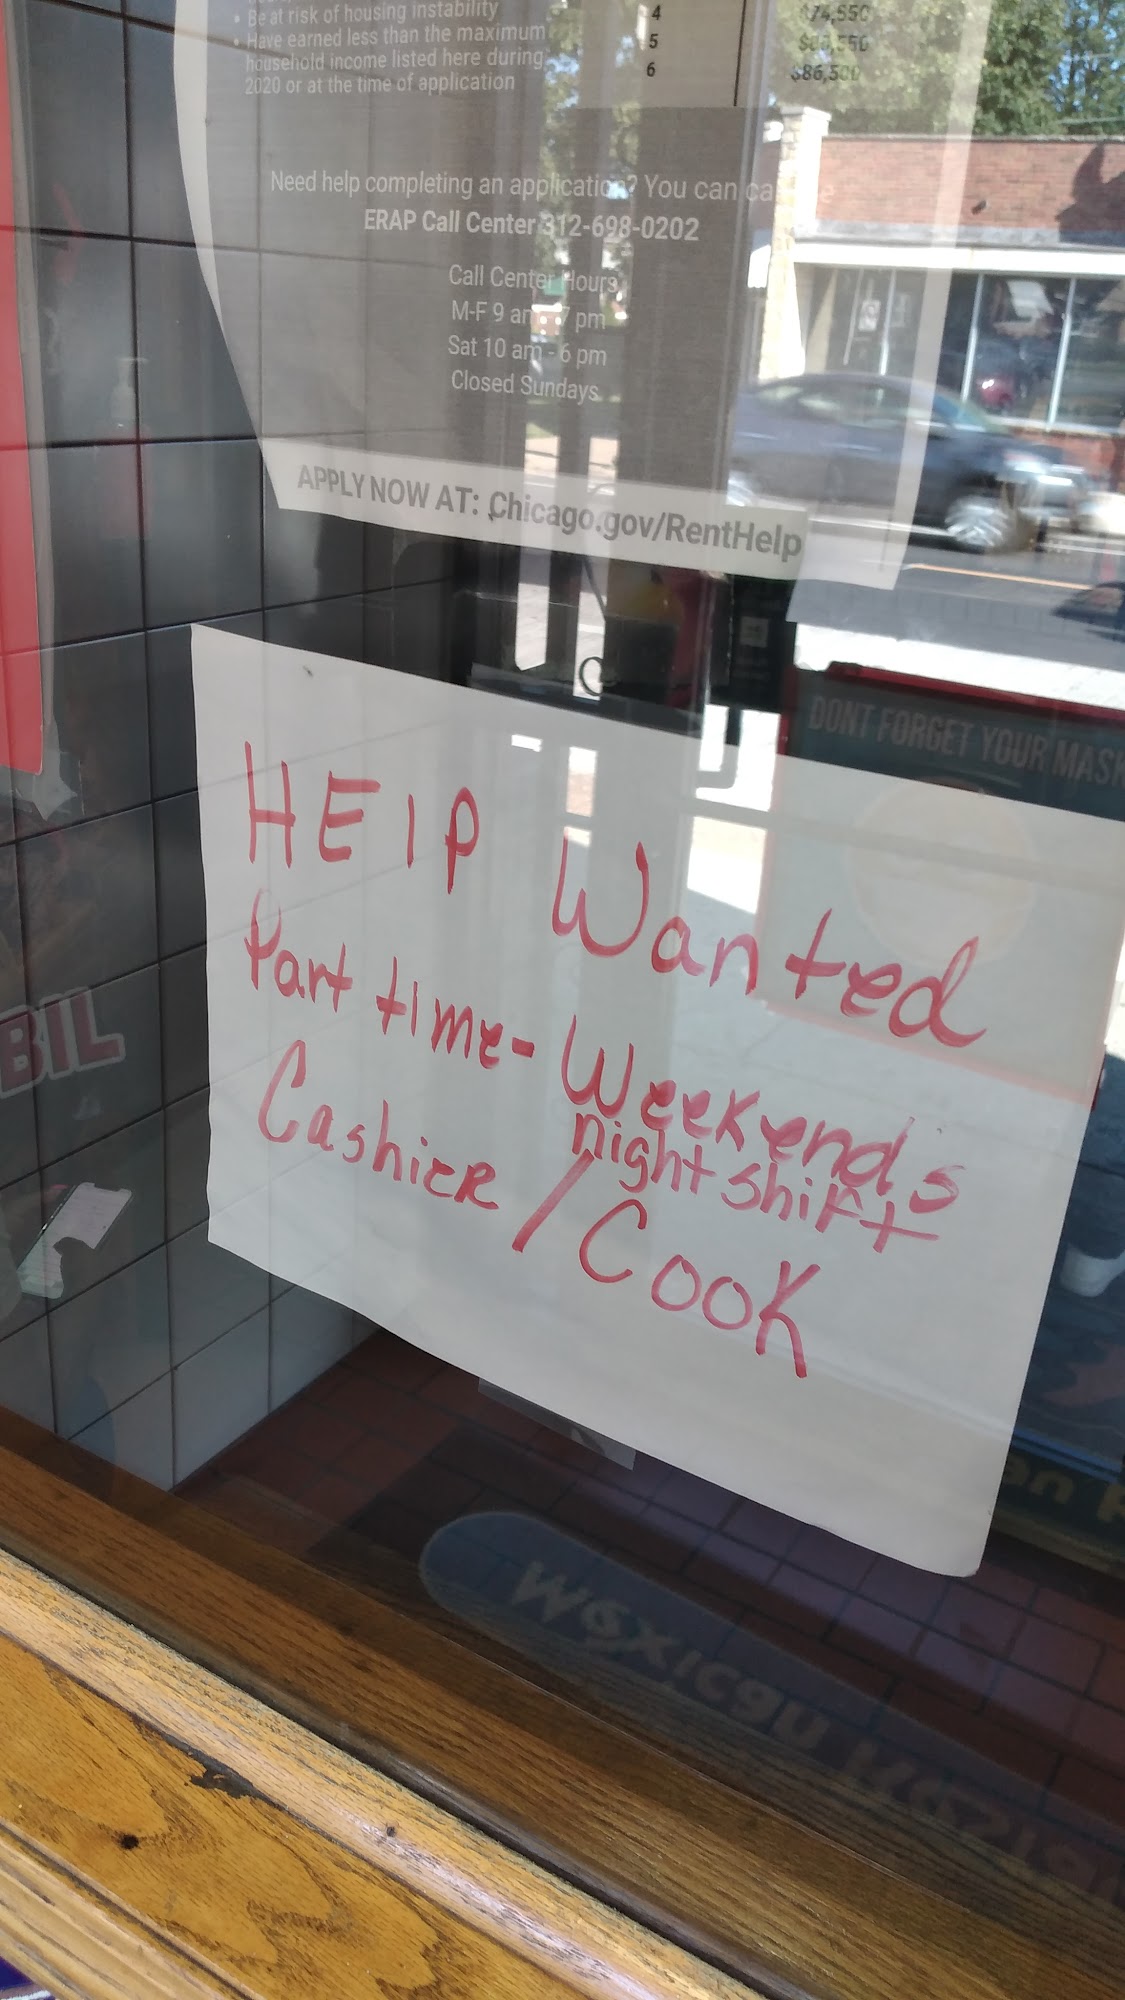 • Be at risk of housing instability
• Have earned less than the maximum
household income listed here during
2020 or at the time of application
4 $74,550
5
6 $86,500
Need help completing an application? You can
ERAP Call Center 312-698-0202
Call Center Hours
M-F 9 am - 7 pm
Sat 10 am - 6 pm
Closed Sundays
APPLY NOW AT: Chicago.gov/RentHelp
DONT FORGET YOUR MASK
HElP Wanted
Part time- Weekends
night shift
Cashier / Cook
BIL
Mexican